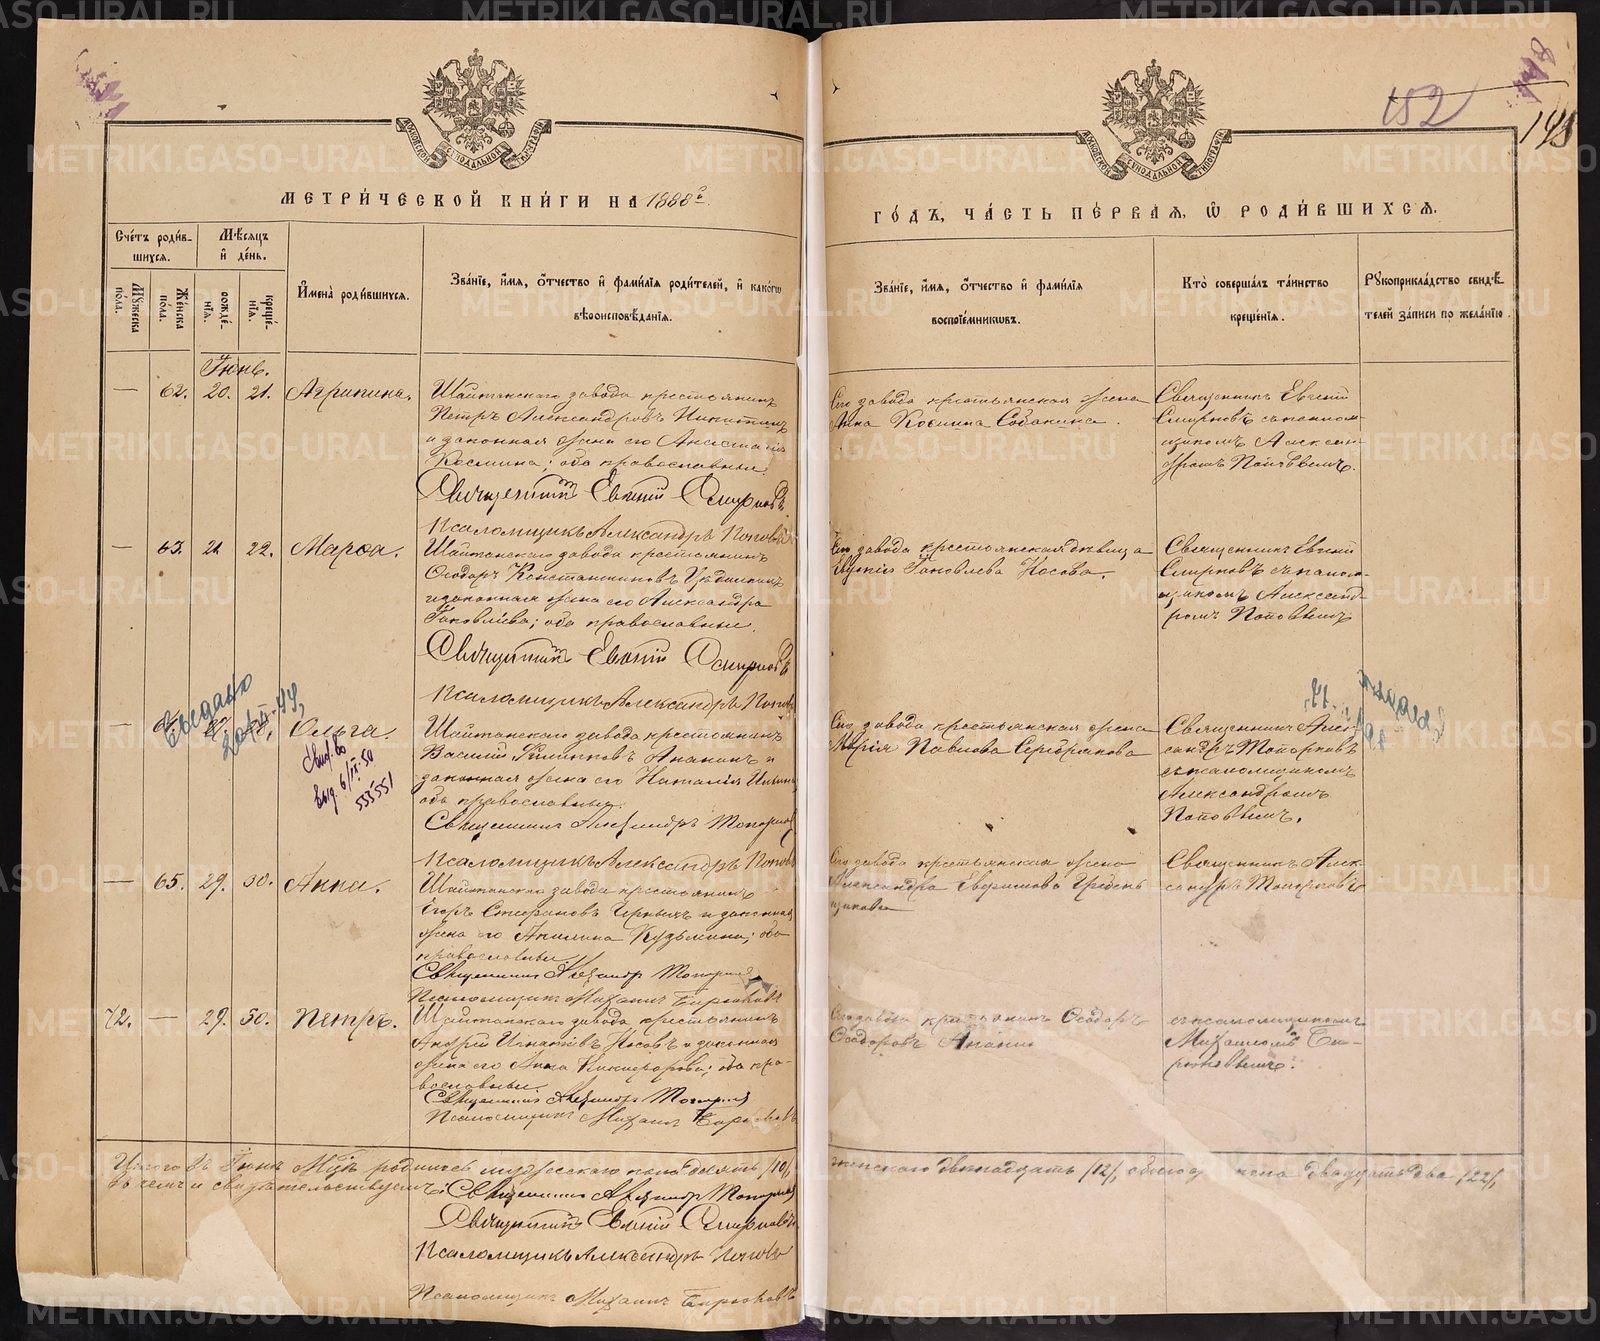 152
143
МЕТРИ́ЧЕСКОЙ КНИ́ГИ НА 1888 й.
ГО́ДЪ, ЧА́СТЬ ПЕ́РВАЯ, Ѿ РОДИ́ВШИХСЯ.
Сче́тъ роди́в-
шихся.
Мѣ́сяцъ
и҆ де́нь.
Мꙋ́жеска
по́ла.
Же́нска
по́ла.
рожде́-
нїѧ.
креще́-
нїѧ.
И҆мена̀ роди́вшихся.
Зва́нїе, и҆́мя, ѻ҆́тчество и҆ фами́лїя роди́телей, и҆ како́гѡ
вѣроисповѣ́данїя.
Зва́нїе, и҆́мя, ѻ҆́тчество и҆ фами́лїя
воспрїе́мникѡвъ.
Кто̀ соверша́лъ та́инство
креще́нїя.
Рꙋкоприкла́дство свидѣ́-
телей за́писи по жела́нїю.
Іюнь.
— 62. 20. 21. Агрипина.
Шайтанскаго завода крестьянинъ
Петръ Александровъ Никитинъ
и законная жена его Анастасія
Космина; оба православные
Священникъ Евгеній Смирновъ
Псаломщикъ Александръ Поповъ
Сего завода крестьянская жена
Анна Космина Собакина.
Священникъ Евгеній
Смирновъ съ псалом-
щикомъ Алексан-
дромъ Поповымъ.
— 63. 21. 22. Марѳа.
Шайтанскаго завода крестьянинъ
Ѳеодоръ Константиновъ
и законная жена его Александра
Іаковлева; оба православные.
Священникъ Евгеній Смирновъ
Псаломщикъ Александръ Поповъ
Сего завода крестьянская дѣвица
Евдокія Іаковлева Носова.
Священникъ Евгеній
Смирновъ съ псалом-
щикомъ Александ-
ромъ Поповымъ
Ольга.
Св-во
выд. 6/IX 50
553551
Шайтанскаго завода крестьянинъ
Василій Филипповъ Ананьинъ и
законная жена его Наталія
оба православные.
Священникъ Александръ Топорковъ
Псаломщикъ Александръ Поповъ
Сего завода крестьянская жена
Марія Павлова Серебрякова
Священникъ Алек-
сандръ Топорковъ
съ псаломщикомъ
Александромъ
Поповымъ.
— 65. 29. 30. Анна.
Шайтанскаго завода крестьянинъ
Егоръ Стефановъ Черныхъ и законная
жена его Акилина Кузьмина; оба
православные
Священникъ Александръ Топорковъ
Псаломщикъ Михаилъ Бирюковъ
Сего завода крестьянская жена
Александра Ефремова Гребень-
щикова
Священникъ Алек-
сандръ Топорковъ
72. — 29. 30. Петръ.
Шайтанскаго завода крестьянинъ
Андрей Игнатьевъ Носовъ и законная
жена его Анна Никифорова; оба пра-
вославные.
Священникъ Александръ Топорковъ
Псаломщикъ Михаилъ Бирюковъ
Сего завода крестьянинъ Ѳеодоръ
Ѳеодоровъ Ананьинъ
съ псаломщикомъ
Михаиломъ Би-
рюковымъ.
Итого въ Іюнѣ м-цѣ родилось мужескаго пола десять /10/,
женскаго двенадцать /12/, обоего пола двадцать два /22/,
въ чемъ и свидѣтельствуемъ: Священникъ Александръ Топорковъ
Священникъ Евгеній Смирновъ
Псаломщикъ Александръ Поповъ
Псаломщикъ Михаилъ Бирюковъ
METRIKI.GASO-URAL.RU